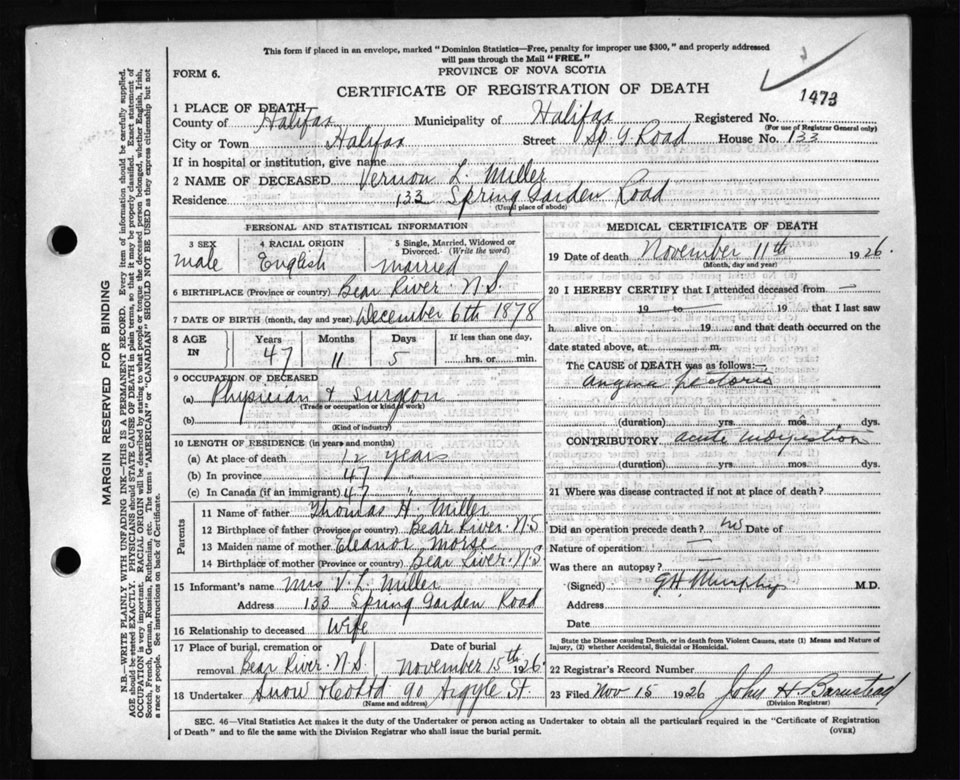 This form if placed in an envelope, marked "Dominion Statistics—Free, penalty for improper use $300," and properly addressed
will pass through the Mail "FREE."
FORM 6.
PROVINCE OF NOVA SCOTIA
CERTIFICATE OF REGISTRATION OF DEATH
1473
1 PLACE OF DEATH
County of Halifax Municipality of Halifax Registered No.
(For use of Registrar General only)
City or Town Halifax Street Sp. G. Road House No. 133
If in hospital or institution, give name
2 NAME OF DECEASED Vernon L. Miller
Residence 133 Spring Garden Road
(Usual place of abode)
PERSONAL AND STATISTICAL INFORMATION
3 SEX 4 RACIAL ORIGIN 5 Single, Married, Widowed or Divorced. (Write the word)
male English married
6 BIRTHPLACE (Province or country) Bear River. N.S.
7 DATE OF BIRTH (month, day and year) December 6th 1878
8 AGE IN Years Months Days If less than one day,
47 11 5 hrs. or min.
9 OCCUPATION OF DECEASED
(a) Physician & Surgeon
(Trade or occupation or kind of work)
(b)
(Kind of industry)
10 LENGTH OF RESIDENCE (in years and months)
(a) At place of death 12 years
(b) In province 47 "
(c) In Canada (if an immigrant) 47 "
Parents
11 Name of father Thomas H. Miller
12 Birthplace of father (Province or country) Bear River. N.S
13 Maiden name of mother Eleanor Morse
14 Birthplace of mother (Province or country) Bear River. N.S
15 Informant's name Mrs V. L. Miller
Address 133 Spring Garden Road
16 Relationship to deceased Wife
17 Place of burial, cremation or removal Bear River. N.S. Date of burial November 15th 1926
18 Undertaker Snow & Co Ltd 90 Argyle St.
(Name and address)
MEDICAL CERTIFICATE OF DEATH
19 Date of death November 11th 1926.
(Month, day and year)
20 I HEREBY CERTIFY that I attended deceased from —
19 — to — 19 — that I last saw
h alive on 19 and that death occurred on the
date stated above, at m.
The CAUSE OF DEATH was as follows:—
angina pectoris
(duration) yrs. mos. dys.
CONTRIBUTORY acute indigestion
(duration) yrs. mos. dys.
21 Where was disease contracted if not at place of death?
Did an operation precede death? no Date of
Nature of operation —
Was there an autopsy? —
(Signed) G.H. Murphy M.D.
Address
Date
State the Disease causing Death, or in death from Violent Causes, state (1) Means and Nature of
Injury, (2) whether Accidental, Suicidal or Homicidal.
22 Registrar's Record Number
23 Filed Nov 15 1926 John H. Barnstead
(Division Registrar)
SEC. 46—Vital Statistics Act makes it the duty of the Undertaker or person acting as Undertaker to obtain all the particulars required in the "Certificate of Registration
of Death" and to file the same with the Division Registrar who shall issue the burial permit.
(OVER)
MARGIN RESERVED FOR BINDING
N.B.—WRITE PLAINLY WITH UNFADING INK—THIS IS A PERMANENT RECORD. Every item of information should be carefully supplied.
AGE should be stated EXACTLY. PHYSICIANS should STATE CAUSE OF DEATH in plain terms, so that it may be properly classified. Exact statement of
OCCUPATION is very important. RACIAL ORIGIN will be described by stating to what people or tongue the deceased person belonged, whether English, Irish,
Scotch, French, German, Russian, Ruthenian, etc. The terms "AMERICAN" or "CANADIAN" SHOULD NOT BE USED as they express citizenship but not
a race or people. See instructions on back of Certificate.